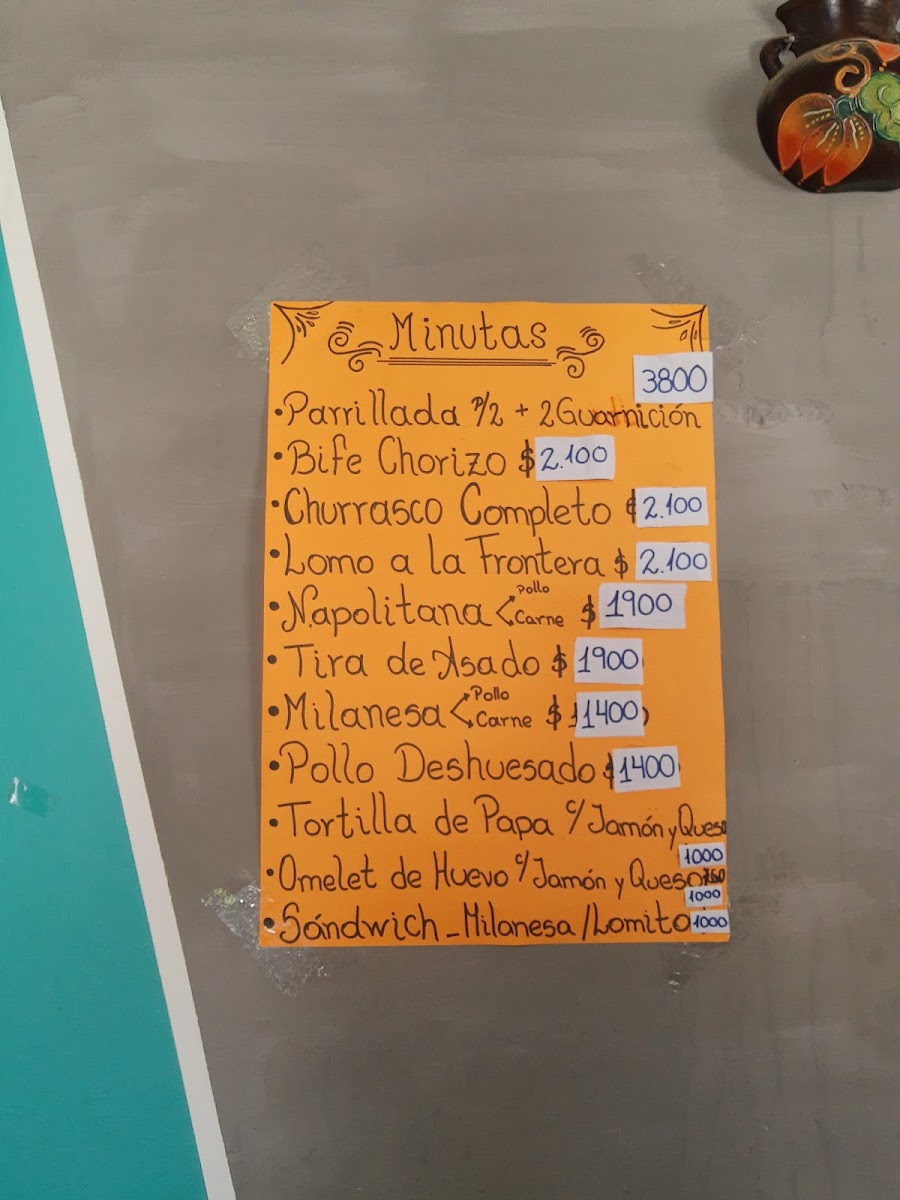 Minutas
3800
•Parrillada P/2 + 2Guarnición
•Bife Chorizo $2.100
•Churrasco Completo $2.100
•Lomo a la Frontera $ 2.100
•Napolitana Pollo Carne $ 1900
•Tira de Asado $ 1900
•Milanesa Pollo Carne $ 1400
•Pollo Deshuesado $1400
•Tortilla de Papa c/Jamón y Queso
1000
•Omelet de Huevo c/Jamón y Queso
1000
•Sándwich_Milanesa/Lomito 1000